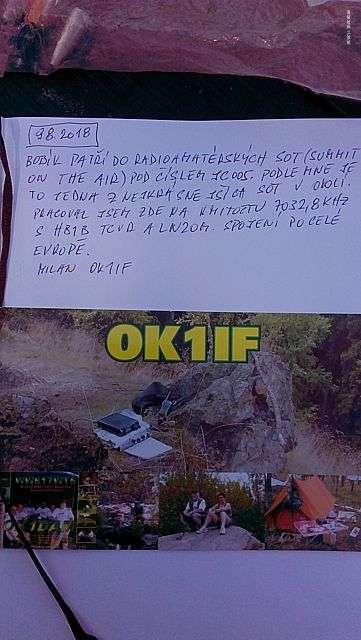 9.8.2018
BOBÍK PATŘÍ DO RADIOAMATÉRSKÝCH SOT (SUMMIT
ON THE AIR) POD ČÍSLEM JC005. PODLE MNE JE
TO JEDNA Z NEJKRÁSNEJŠÍCH SOT V OKOLÍ.
PRACOVAL JSEM ZDE NA KMITOČTU 7032,8 KHZ
S HB1B TCVR A LN20M. SPOJENÍ PO CELÉ
EVROPĚ.
MILAN OK1IF
OK1IF